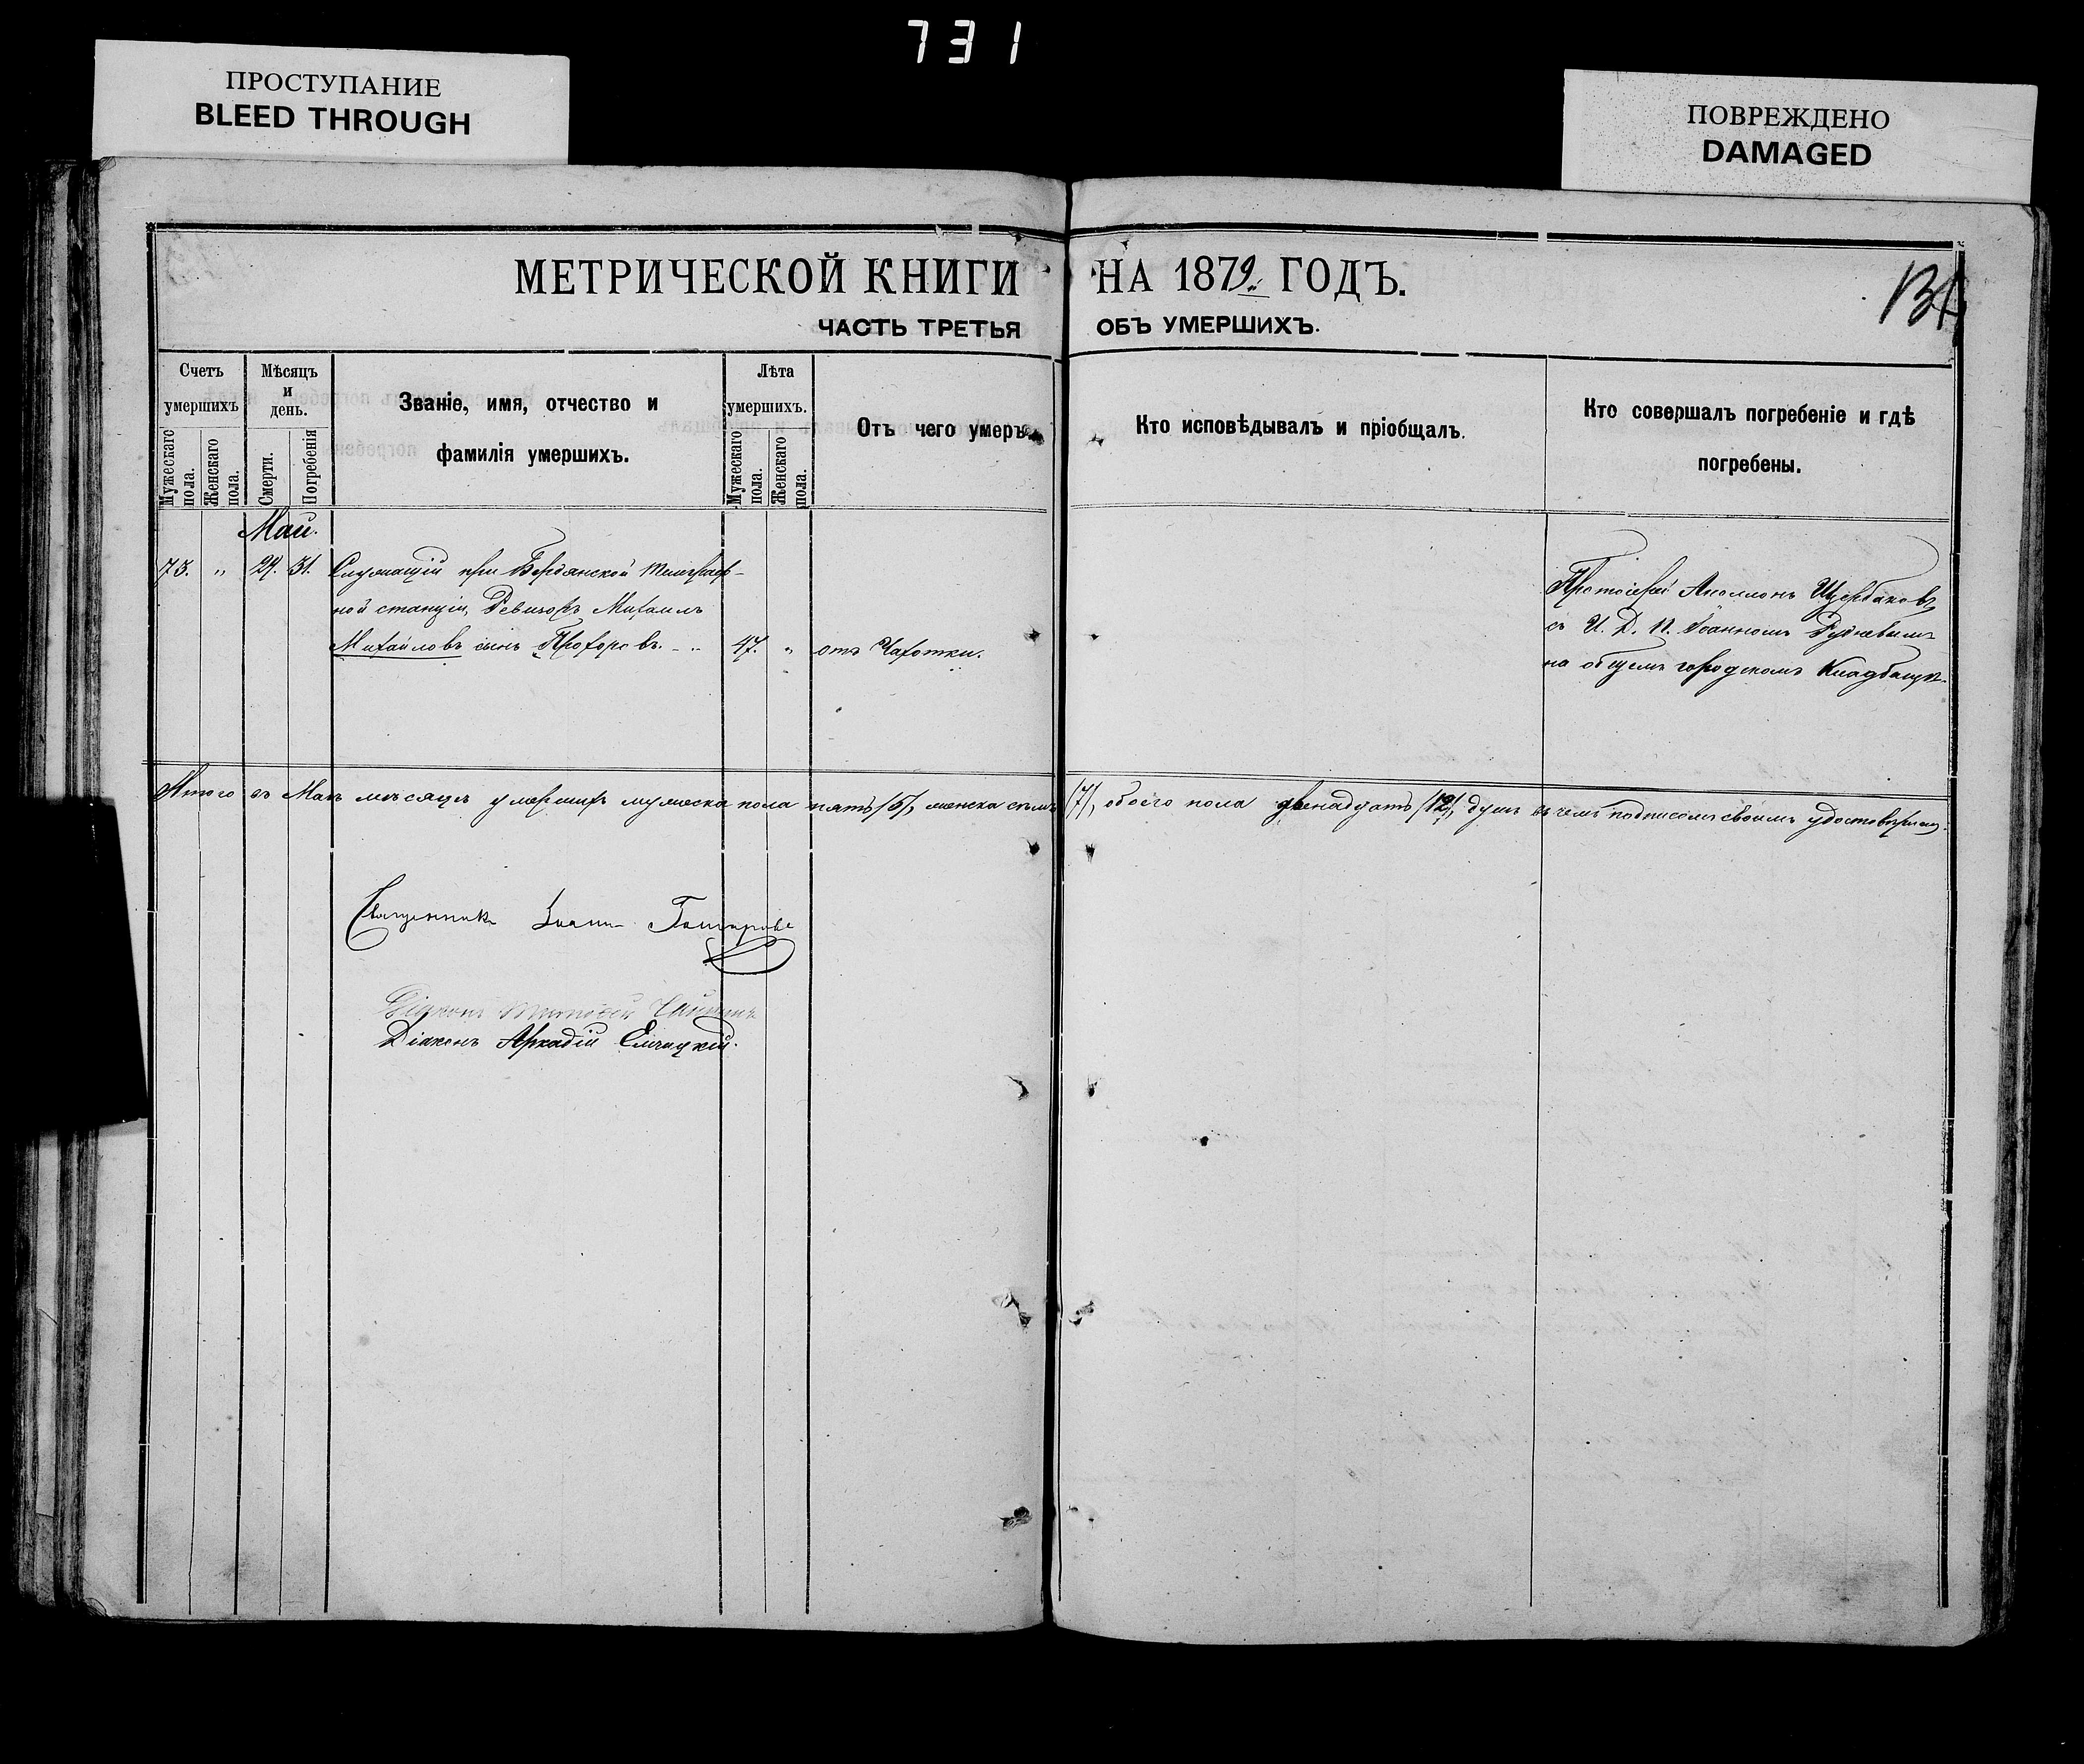 731
ПРОСТУПАНИЕ
BLEED THROUGH
ПОВРЕЖДЕНО
DAMAGED
МЕТРИЧЕСКОЙ КНИГИ НА 1879. ГОДЪ.
ЧАСТЬ ТРЕТЬЯ ОБЪ УМЕРШИХЪ.
Счетъ умершихъ
Мужескаго пола.
Женскаго пола.
Мѣсяцъ и день.
Смерти.
Погребенія
Званіе, имя, отчество и
фамилія умершихъ.
Лѣта умершихъ.
Мужескаго пола.
Женскаго пола.
Отъ чего умеръ.
Кто исповѣдывалъ и пріобщалъ.
Кто совершалъ погребеніе и гдѣ
погребены.
Май.
73. " 29. 31. Служащій при Бердянской телеграф-
ной станціи, Ревизоръ Михаилъ
Михайловъ сынъ Прохоровъ. 47. " отъ Чахотки.
Протоіерей Аполлонъ Щербаковъ
съ И. Д. П. Іоанномъ Рудневымъ
на общемъ городскомъ Кладбищѣ.
Итого въ Маѣ мѣсяцѣ умершихъ мужеска пола пять /5/, женска семь /7/, обоего пола двенадцать /12/, душъ въ чемъ подписомъ своимъ удостовѣряемъ.
Священникъ Іоаннъ
Діаконъ
Діаконъ Аркадій